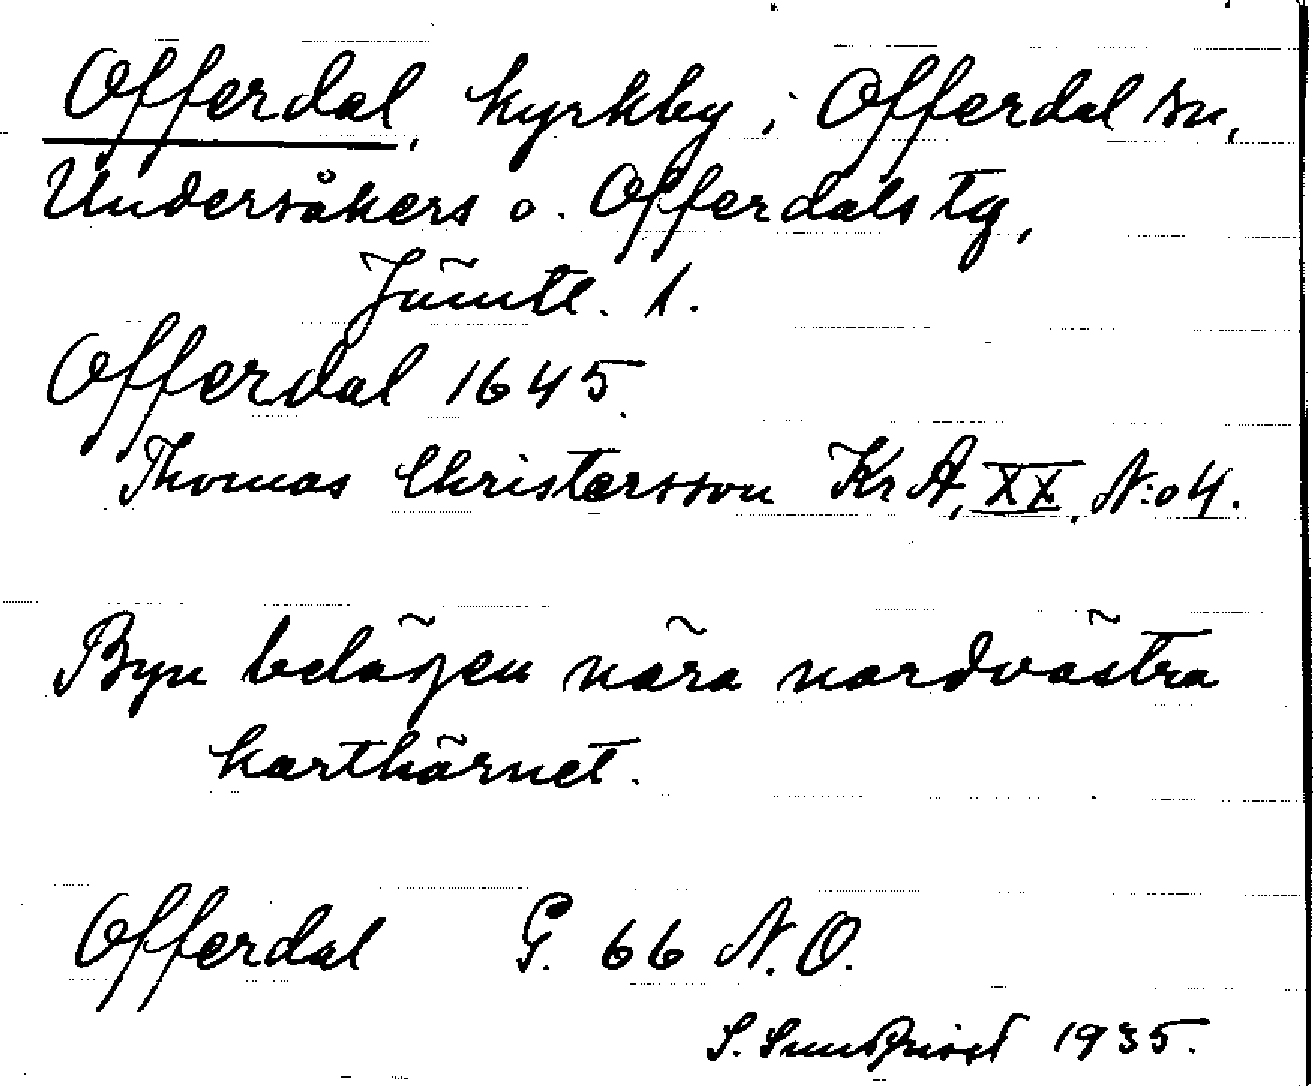 Offerdal, kyrkby i Offerdal sn,
Undersåkers o. Offerdals tg,
Jämtl. l.
Offerdal 1645.
Thomas Christersson KrA, XX, N:o 4.
Byn belägen nära nordvästra
karthörnet.
Offerdal G. 66 N.O.
S. Sundqvist 1935.